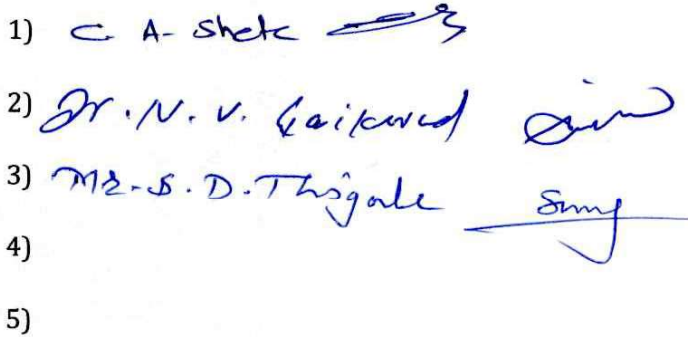 1) C. A. Shete
2) Dr. N. V. Gaikwad
3) Mr. S. D. Thigale
4)
5)